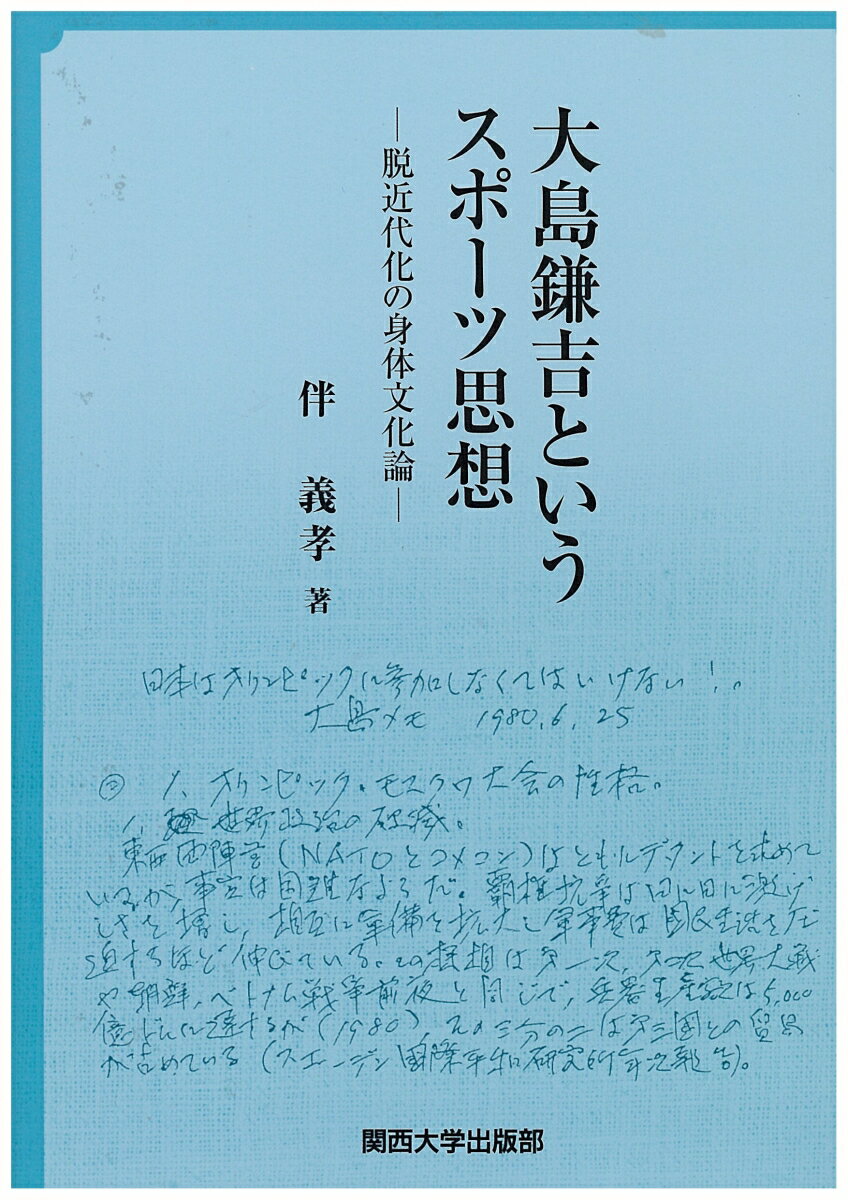 大島鎌吉という
スポーツ思想
―脱近代化の身体文化論―
伴 義孝 著
日本はオリンピックに参加しなくてはいけない!。
大島メモ 1980.6.25
1、オリンピック・モスクワ大会の性格。
1、世界政治の破滅。
東西両陣営(NATOとコメコン)はともにデタントを求めて
いるが、事実は困難なようだ。覇権抗争は日に日に激げ
しさを増し、相互に軍備を拡大し軍事費は国民生活を圧
迫するほど伸びている。この様相は第一次、第二次世界大戦
や朝鮮、ベトナム戦争前夜と同じで、兵器生産額は5,000
億ドルに達するが(1980)、その三分の二は第三国との貿易
が占めている(スエーデン国際平和研究所年次報告)。
関西大学出版部